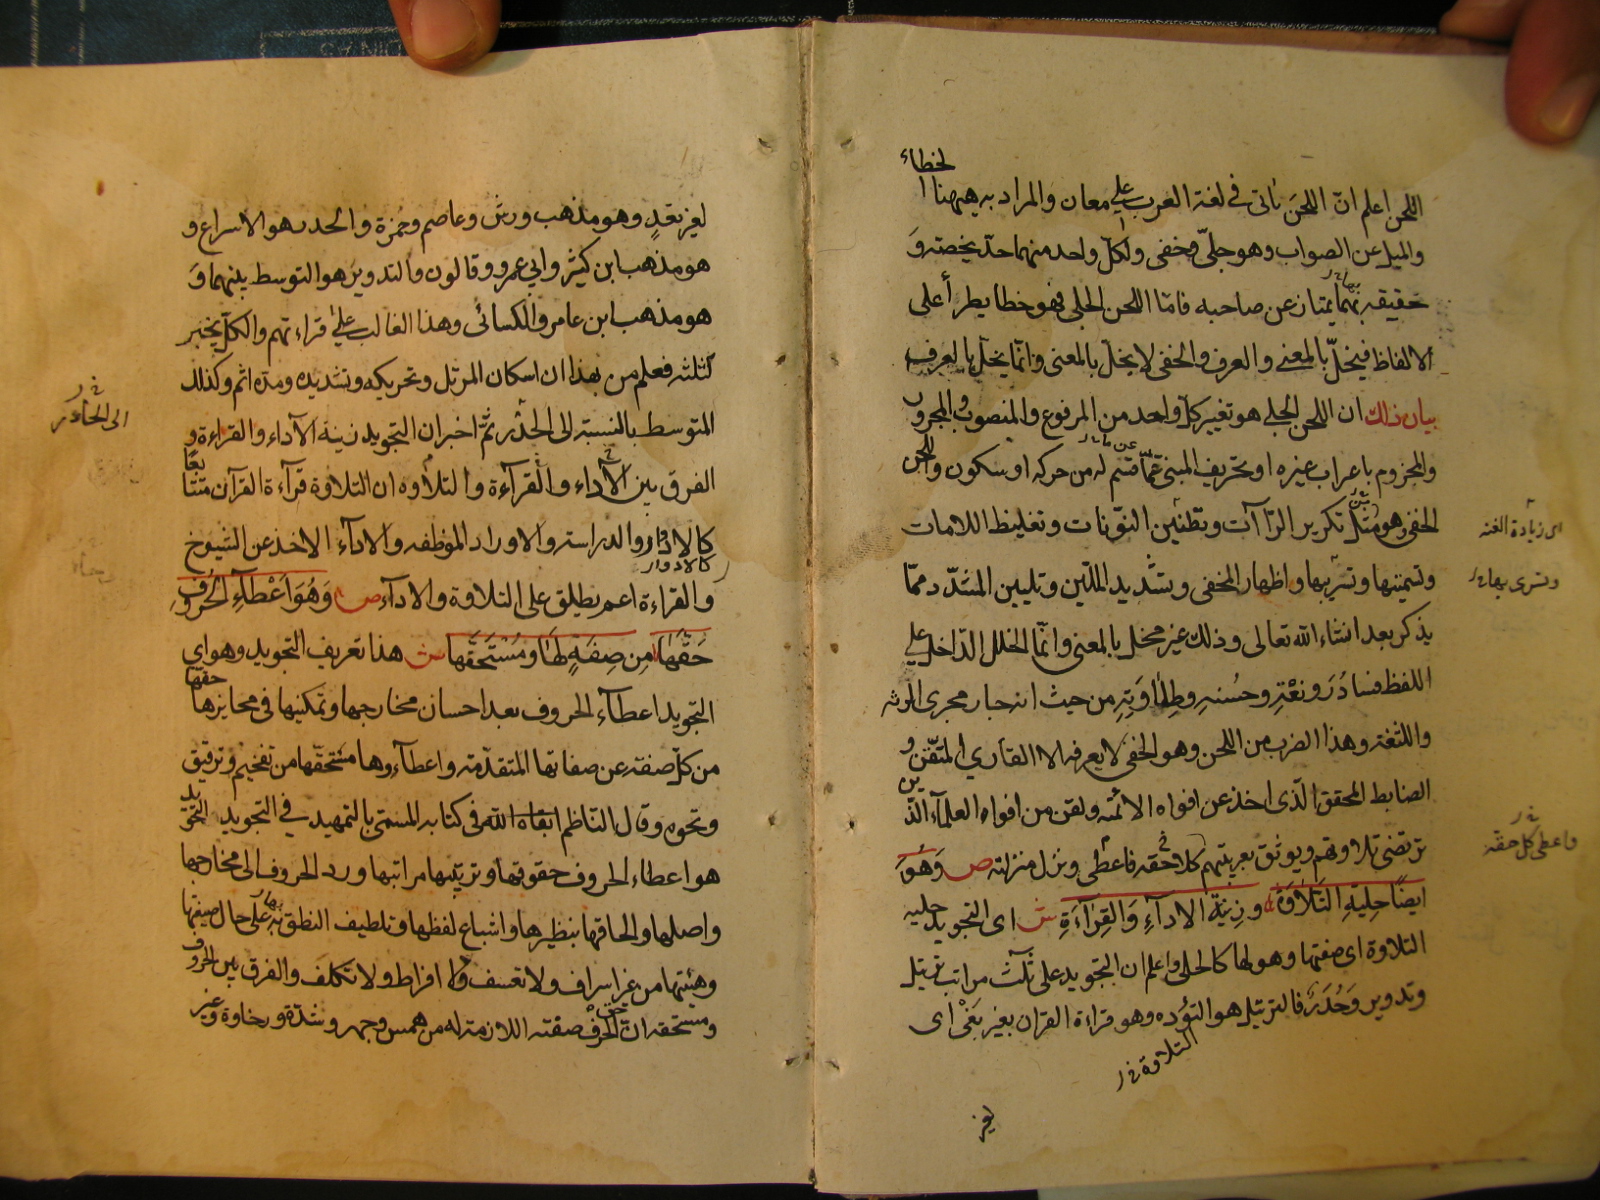 اللحن اعلم انّ اللحن ياتى فى لغة العرب على معان والمراد به ههنا الخطاء
والميل عن الصواب وهو جلىّ وخفى ولكلّ واحد منهما حدّ يخصّه و
حقيقه بهما يمتاز عن صاحبه فامّا اللحن الجلى فهو خطا يطرأ على
الالفاظ فيخلّ بالمعنى والعرف والخفى لا يخلّ بالمعنى وانّما يخلّ بالعرف
بيان ذلك ان اللحن الجلى هو تغيير كلّ واحد من المرفوع والمنصوب والمجرور
والمجزوم باعراب غيره او تحريف المبنى عمّا قسّم له من حركه او سكون واللحن
الخفى وهو مثل تكرير الرّاآت وتطنين النّونات وتغليظ اللامات
وتسمينها وتشريبها واظهار المخفى وتشديد الملّين وتليين المشدّد ممّا
يذكر بعد انشاء الله تعالى وذلك غير مخل بالمعنى وانّما الخلل الدّاخل على
اللفظ فساد رونقه وحسنه وطلاوته من حيث انه جار مجرى الرثه
واللثغة وهذا الضرب من اللحن وهو الخفى لا يعرفه الا القارى المتقن و
الضابط المحقق الّذى اخذ عن افواه الائمّه ولقن من افواه العلمآء الّذين
ترتضى تلاوتهم ويوثق بعربيتهم كلا حقه فاعطى ونزل منزلته ص وَهُوَ
ايضًا حِلية التِّلاوَة وزِينَةُ الاداءِ وَالقِرآءَةِ ش اى التجويد حليه
التلاوة اى صفتها وهو لها كالحلى واعلم ان التجويد على ثلث مراتب ترتيل
وتدوير وَحَدَرْ فالترتيل هو التؤده وهو قراءة القران بغير بَغْىٍ اى
التلاوة خ ر
لغير
اى زيادة الغنه
خ ر
واعطى كل حقه
لغير تعدٍ وهو مذهب ورش وعاصم وحمزة والحدر هو الاسراع و
هو مذهب ابن كثير وابى عمرو وقالون والتدوير هو التوسط بينهما و
هو مذهب ابن عامر والكسائى وهذا الغالب على قراءتهم والكل يخبر
كثلثه فعلم من هذا ان اسكان المرتل وتحريكه وتشديده ومدّه اتم وكذلك
المتوسط بالنسبة الى الحذر ثمّ اخبر ان التجويد زينة الآداء والقراءة و
الفرق بين الاداء والقرآءة والتلاوه ان التلاوة قرآءة القرآن متتابعًا
كالاوراد والدراسة والاوراد الموظفه والاداء الاخذ عن الشيوخ
كالادوار
والقراءة اعم يطلق على التلاوة والاداء ص وَهُوَ اعْطَآءُ الحُرُوفِ
حَقَّهَا مِن صِفَةٍ لَهَا وَمُسْتَحَقَّها ش هذا تعريف التجويد وهو اى
التجويد اعطاء الحروف حقها بعد احسان مخارجها وتمكينها فى محايزها
من كلّ صفة عن صفاتها المتقدّمة واعطآءوها مستحقّها من تفخيم وترقيق
ونحوه وقال النّاظم ابقاه الله فى كتابه المسمّى بالتمهيد فى التجويد التجويد
هو اعطاء الحروف حقوقها وترتيبها مراتبها ورد الحروف الى مخارجها
واصلها والحاقها بنظيرها واشباع لفظها وتلطيف النطق به على حال صيغتها
وهيئتها من غير اسراف ولا تعسف ولا افراط ولا تكلف والفرق بين الحروف
ومستحقه ان حق الحرف صفته اللازمة له من همس وجهر وشدّة ورخاوة وغير
خ ر
الى الحادر